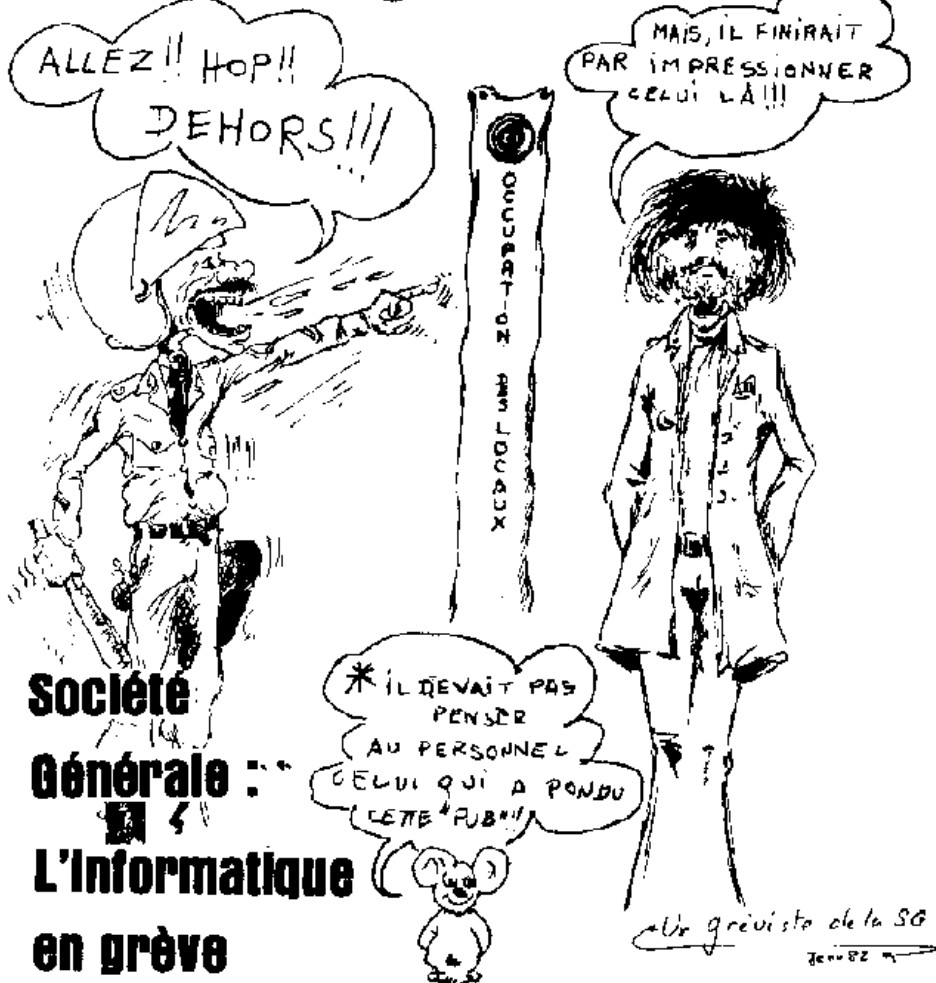 ALLEZ!! HOP!!
DEHORS!!!
MAIS, IL FINIRAIT
PAR IMPRESSIONNER
CELUI LÀ!!!
OCCUPATION DES LOCAUX
* IL DEVAIT PAS
PENSER
AU PERSONNEL
CELUI QUI A PONDU
CETTE "PUB"!!
Société
Générale :
L'informatique
en grève
Un gréviste de la SG
Janv 82